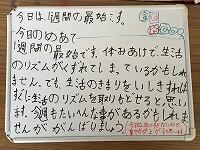 今日は1週間の最始です。
今日のめあて
1週間の最始です。休みあけで、生活
のリズムがくずれてしまっているかもしれ
ません。でも、生活のきまりをいしきすれば
すぐに生活のリズムを取りもどせると思い
ます。今週もたいへんな事があるかもしれま
せんががんばりましょう